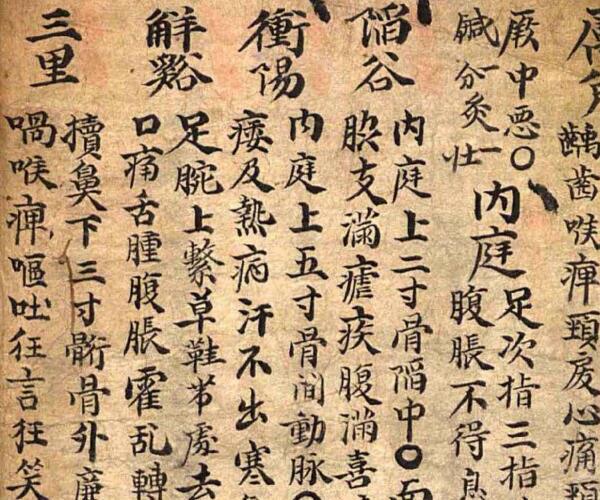 齲齒喉痺頸心痛頸
厥中惡○
鍼一分灸一壯
内庭
足次指三指
腹脹不得息
陷谷
内庭上二寸骨陷中○面
支滿瘧疾腹滿喜
衝陽
内庭上五寸骨間動脉○
痿及熱病汗不出寒
解谿
足腕上繫草鞋帶處去
口痛舌腫腹脹霍亂轉
三里
犢鼻下三寸䯒骨外廉
喎喉痺嘔吐狂言狂笑